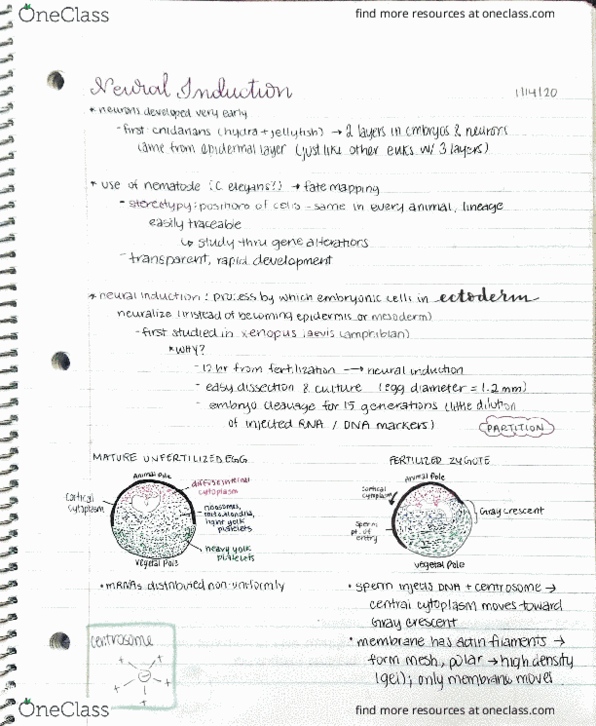 OneClass
find more resources at oneclass.com
Neural Induction
1/14/20
* neurons developed very early
- first cnidarians (hydra + jellyfish) → 2 layers in embryos & neurons
came from epidermal layer (just like other euks w/ 3 layers)
* use of nematode (C. elegans!!) → fate mapping
- stereotypy: positions of cells - same in every animal, lineage
easily traceable
↳ study thru gene alterations
- transparent, rapid development
* neural induction: process by which embryonic cells in ectoderm
neuralize (instead of becoming epidermis or mesoderm)
- first studied in xenopus laevis (amphibian)
* WHY?
- 12 hr from fertilization → neural induction
- easy dissection & culture (egg diameter = 1.2 mm)
- embryo cleavage for 15 generations (little dilution
of injected RNA / DNA markers)
PARTITION
MATURE UNFERTILIZED EGG
Animal Pole
Cortical
cytoplasm
cytoplasm
ribosomes,
light yolk
platelets
heavy yolk
platelets
Vegetal Pole
• mRNAs distributed non-uniformly
centrosome
FERTILIZED ZYGOTE
Animal Pole
cortical
cytoplasm
Gray crescent
sperm
pt. of
entry
Vegetal Pole
• sperm injects DNA + centrosome →
central cytoplasm moves toward
Gray crescent
• membrane has actin filaments →
form mesh, polar → high density
(gel); only membrane moves
OneClass
find more resources at oneclass.com